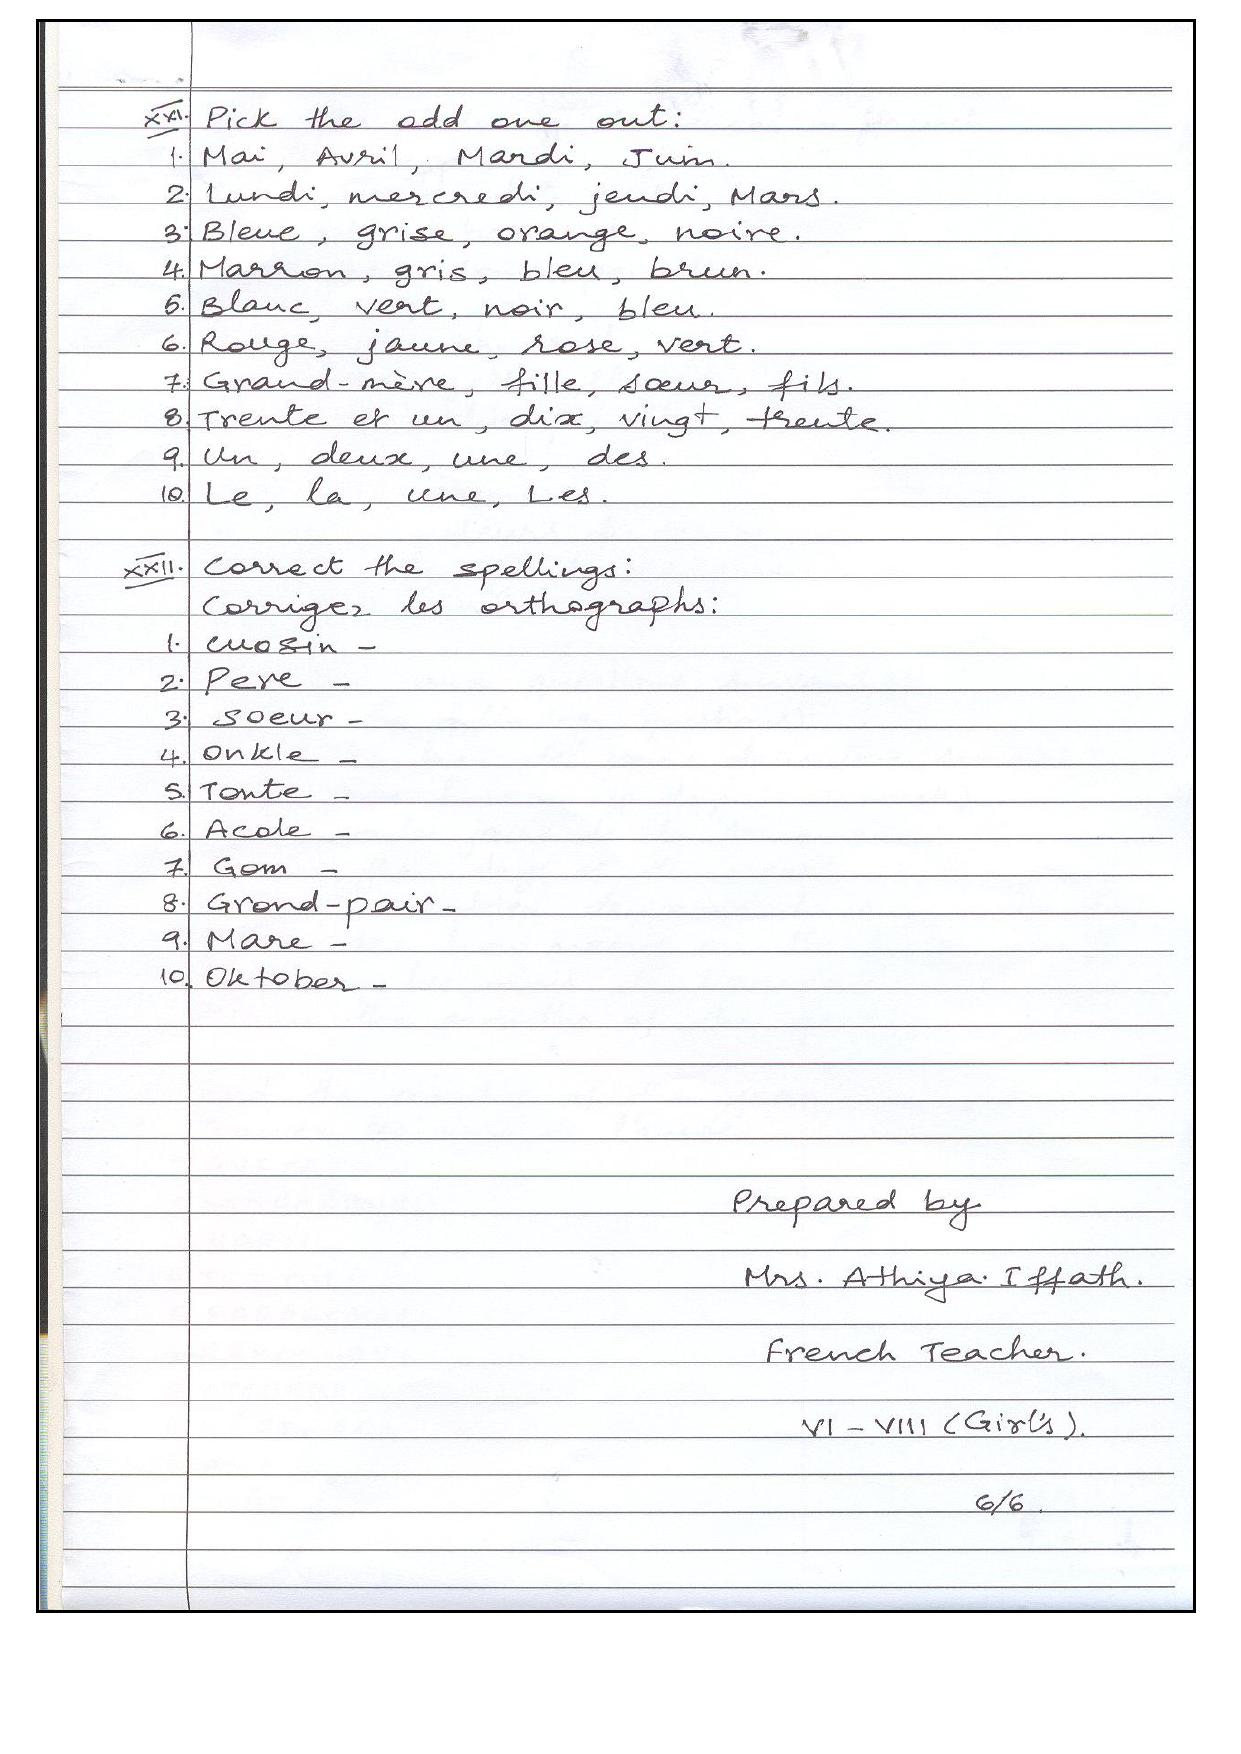 XXI. Pick the odd one out:
1. Mai, Avril, Mardi, Juin.
2. Lundi, mercredi, jeudi, Mars.
3. Bleue, grise, orange, noire.
4. Marron, gris, bleu, brun.
5. Blanc, vert, noir, bleu.
6. Rouge, jaune, rose, vert.
7. Grand-mère, fille, sœur, fils.
8. Trente et un, dix, vingt, trente.
9. Un, deux, une, des.
10. Le, la, une, Les.
XXII. Correct the spellings:
Corrigez les orthographs:
1. cuosin -
2. Pere -
3. Soeur -
4. onkle -
5. Tonte -
6. Acole -
7. Gom -
8. Grond-pair-
9. Mare -
10. Oktober -
Prepared by
Mrs. Athiya. Iffath.
French Teacher.
VI - VIII (Girl's).
6/6.